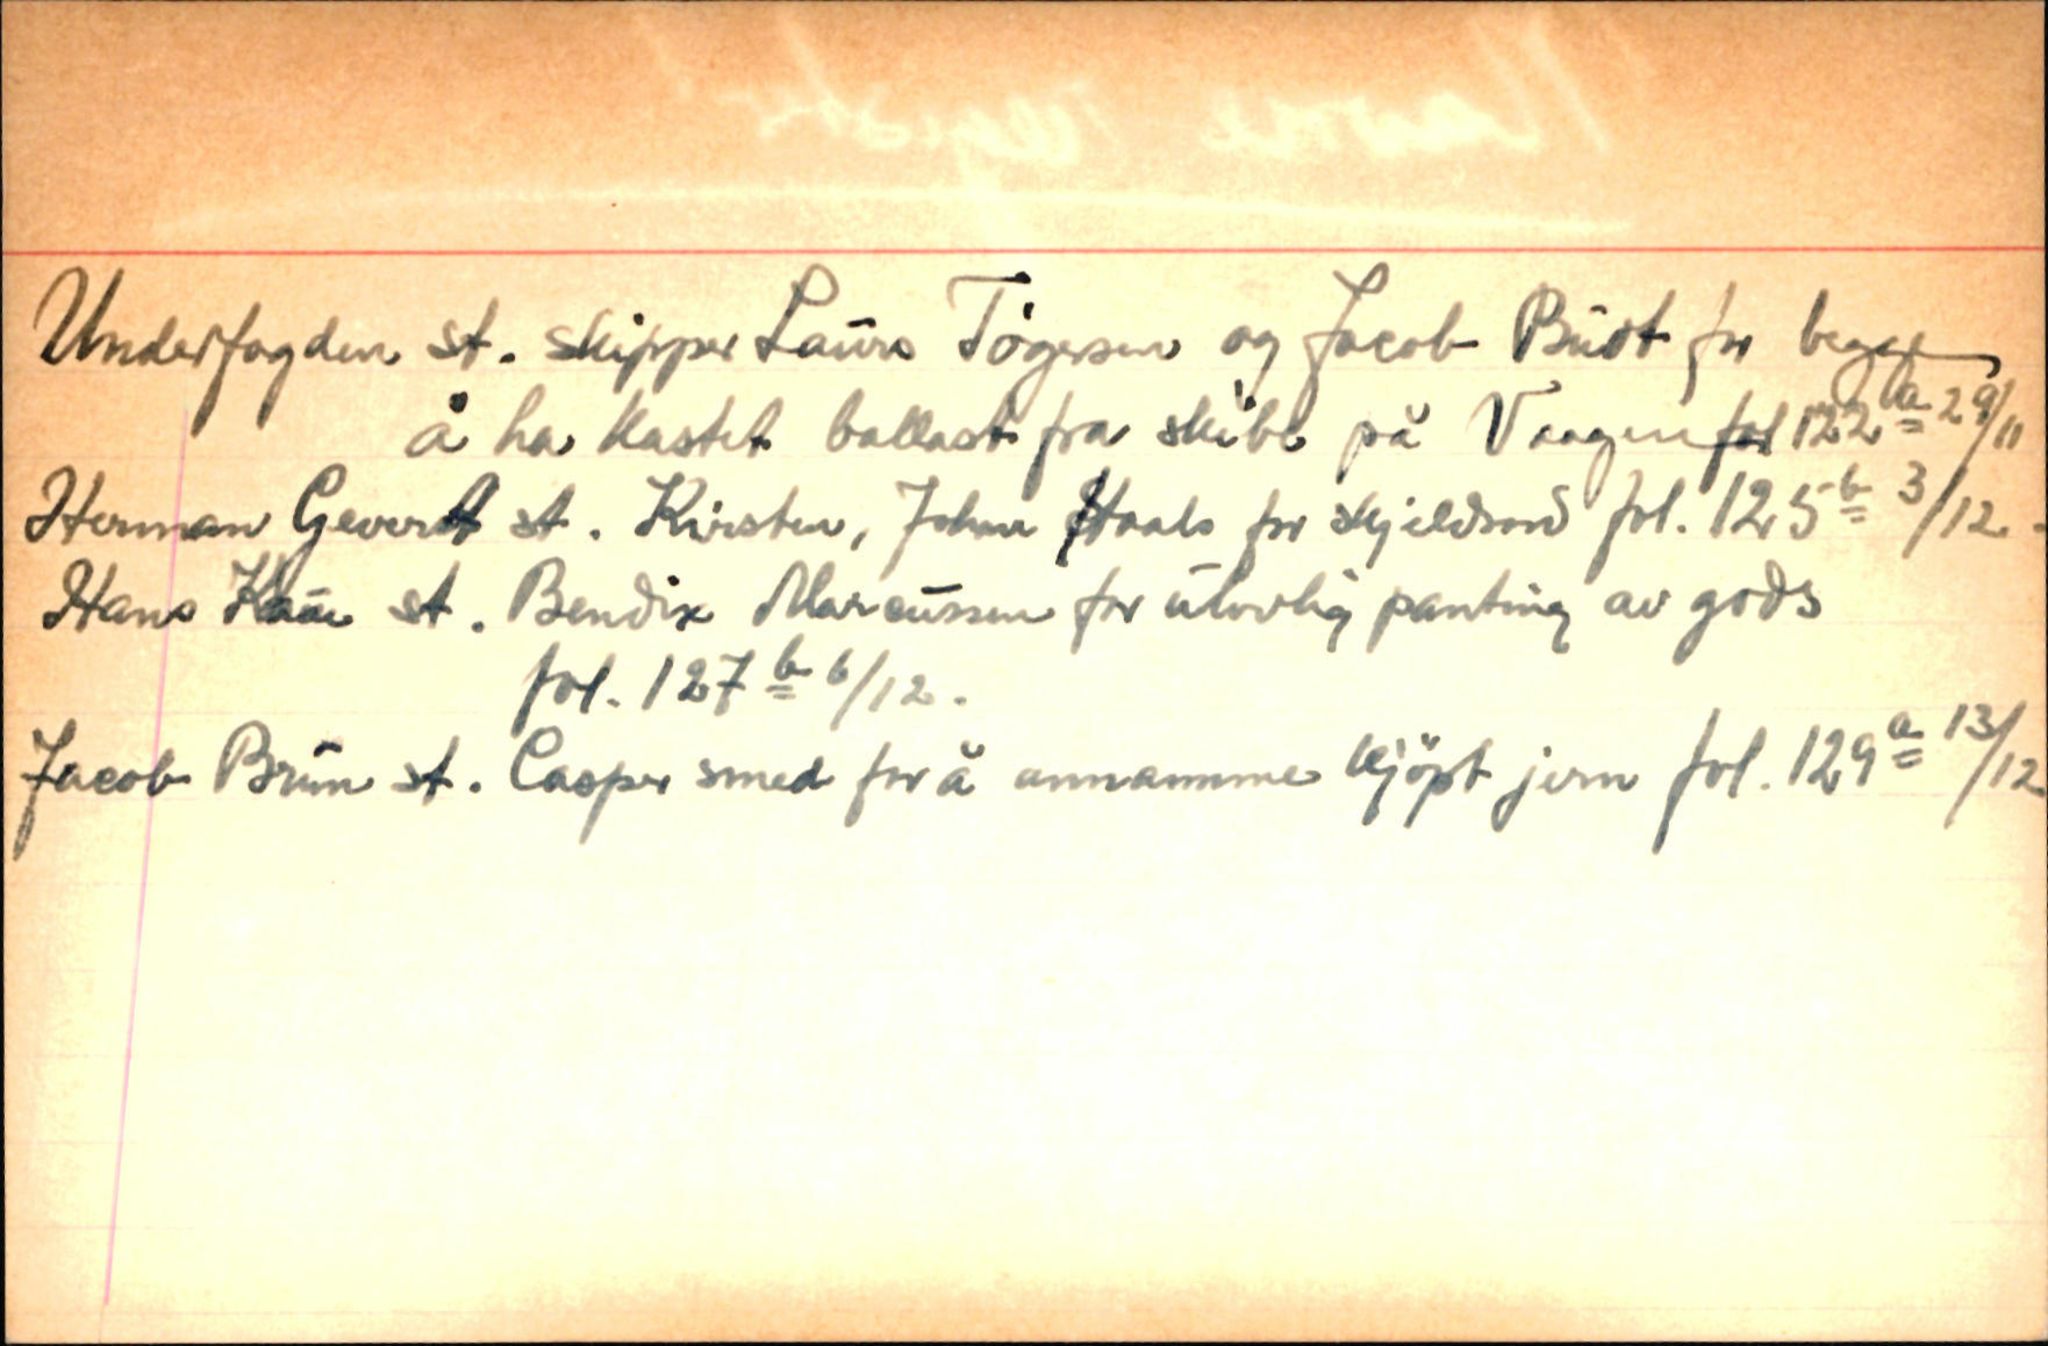 Underfogden st. skipper Laurs Tögersen og Jacob Budt for begge
å ha kastet ballast fra skibe på Vaagen fol 122 a 29/11
Herman Gevert st. Kirsten, John Staals for skjeldsord fol. 125 b 3/12.
Hans st. Bendix Marcussen for ulovlig panting av gods
fol. 127 b 6/12.
Jacob Brun st. Casper smed for å annamme kjöpt jern fol. 129 a 13/12